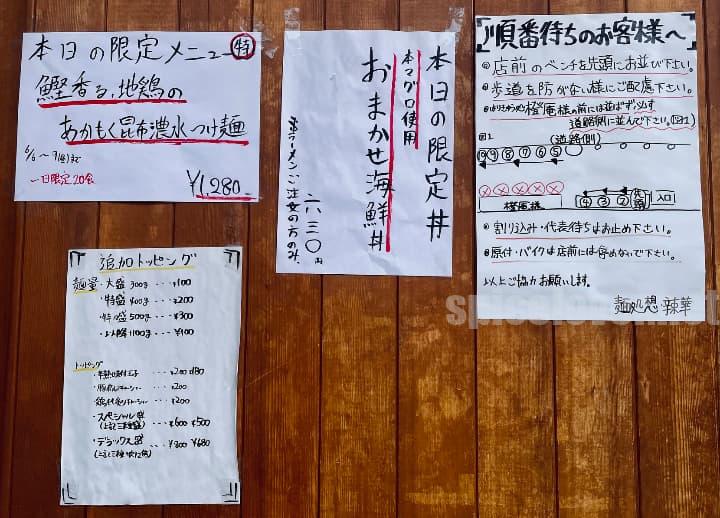 本日の限定メニュー 特
鰹香る、地鶏の
あかもく昆布濃水つけ麺
一日限定20食
¥1,280.
本日の限定丼
本マグロ使用
おまかせ海鮮丼
六三〇円
※ラーメンご注文の方のみ
順番待ちのお客様へ
店前のベンチを先頭にお並び下さい。
歩道を防がない様にご配慮下さい。
の前には並ばず必ず
道路側に並んで下さい。(図1)
図1
(道路側)
⑩⑨⑧⑦⑥⑤
④③②先頭 入口
割り込み・代表待ちはお止め下さい。
原付・バイクは店前には停めないで下さい。
以上ご協力お願いします。
麺処 想・辣華
追加トッピング
麺量・大盛 300g … ¥100
・特盛 400g … ¥200
・特々盛 500g … ¥300
・以降100g … ¥100
トッピング
¥200
¥200
・スペシャル … ¥600 ¥500
・デラックス … ¥800 ¥680